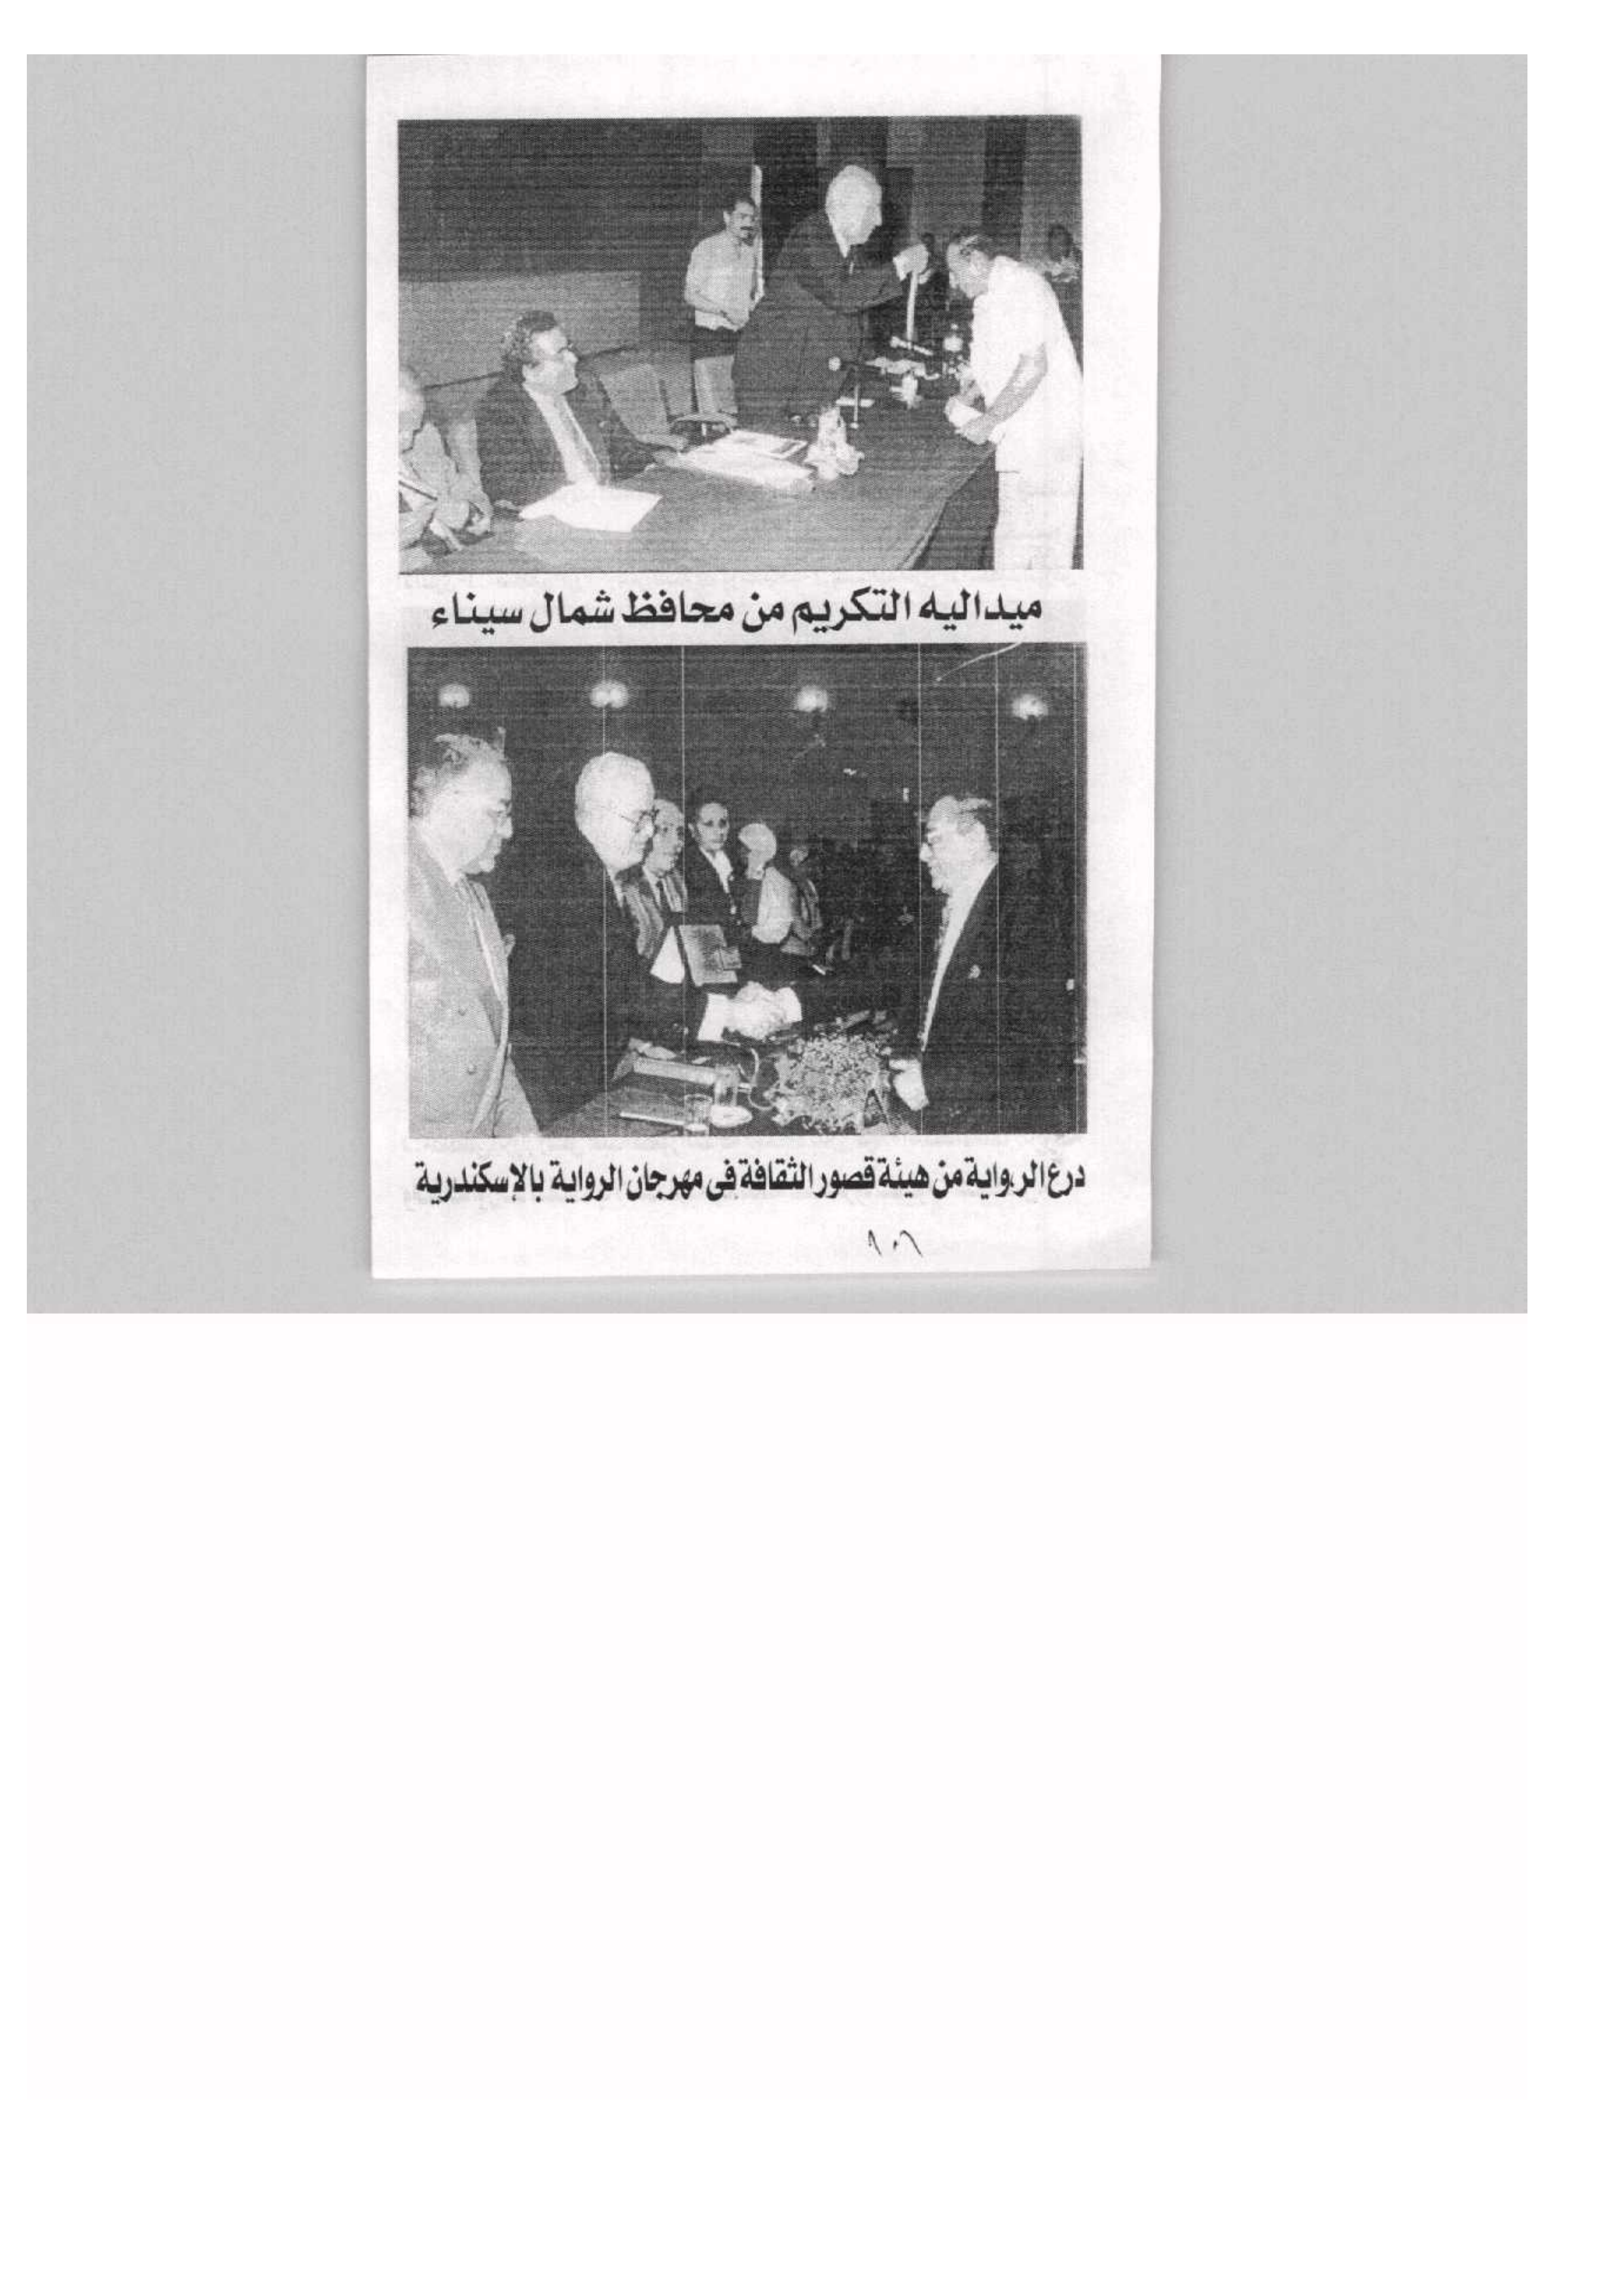 ميداليه التكريم من محافظ شمال سيناء
درع الرواية من هيئة قصور الثقافة فى مهرجان الرواية بالإسكندرية